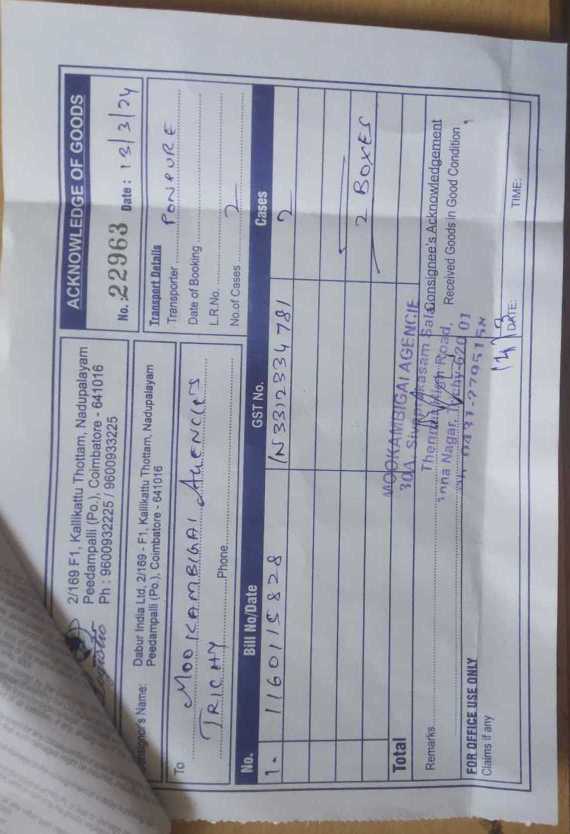 2/169 F1, Kallikattu Thottam, Nadupalayam
Peedampalli (Po.), Coimbatore - 641016
Ph : 9600932225 / 9600933225
ACKNOWLEDGE OF GOODS
No. : 22963 Date : 13/3/24
Name: Dabur India Ltd, 2/169 - F1, Kallikattu Thottam, Nadupalayam
Peedampalli (Po.), Coimbatore - 641016
Transport Details
Transporter PONPURE
Date of Booking
L.R.No.
No.of Cases 2
To MOOKAMBIGAI AGENCIES
TRICHY
Phone
No. Bill No/Date GST No. Cases
1. 1160115828 IN3312334781 2
2 BOXES
Total
MOOKAMBIGAI AGENCIE
30A
Road,
Remarks
Consignee's Acknowledgement
Received Goods in Good Condition
FOR OFFICE USE ONLY
Claims if any
DATE: TIME: